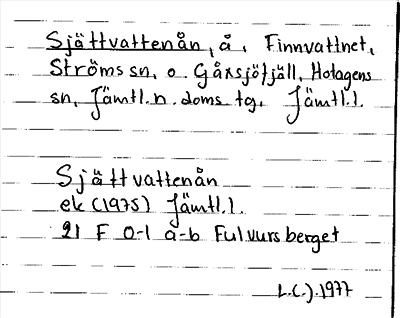 Sjättvattenån, å, Finnvattnet,
Ströms sn, o Gåxsjöfjäll, Hotagens
sn, Jämtl. n. doms tg, Jämtl. l.
Sjättvattenån
ek (1975) Jämtl. l.
21 F 0-1 a-b Fulvurs berget
L.C.J. 1977